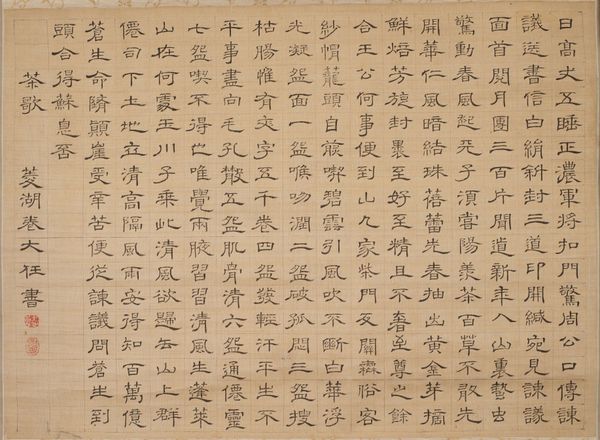 日高丈五睡正濃軍將扣門驚周公口傳諫
議送書信白絹斜封三道印開緘宛見諫議
面首閱月團三百片聞道新年入山裏蟄虫
驚動春風起天子須嘗陽羨茶百草不敢先
開華仁風暗結珠蓓蕾先春抽出黃金芽摘
鮮焙芳旋封裹至好至精且不奢至尊之餘
合王公何事便到山人家柴門反關無俗客
紗帽蘢頭自煎喫碧雲引風吹不斷白華浮
光凝盌面一盌喉吻潤二盌破孤悶三盌搜
枯腸惟有文字五千卷四盌發輕汗平生不
平事盡向毛孔散五盌肌骨清六盌通僊靈
七盌喫不得也唯覺兩腋習習清風生蓬萊
山在何處玉川子乘此清風欲歸去山上群
僊司下土地位清高隔風雨安得知百萬億
蒼生命隮顛崖受辛苦便從諫議問蒼生到
頭合得蘇息否
茶歌 菱湖卷大任書